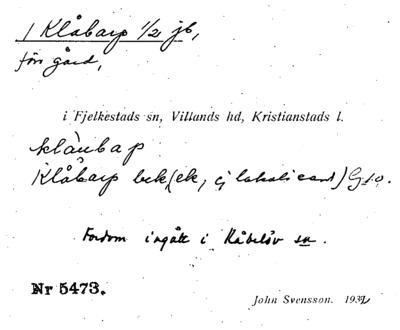 1 Klåbarp 1/2 jb,
förr gård,
i Fjelkestads sn, Villands hd, Kristianstads l.
klåubap
Klåbarp bck (ek, ej lokaliserad) G10.
Fordom ingått i Råbelöv sn.
Nr 5473.
John Svensson. 1932